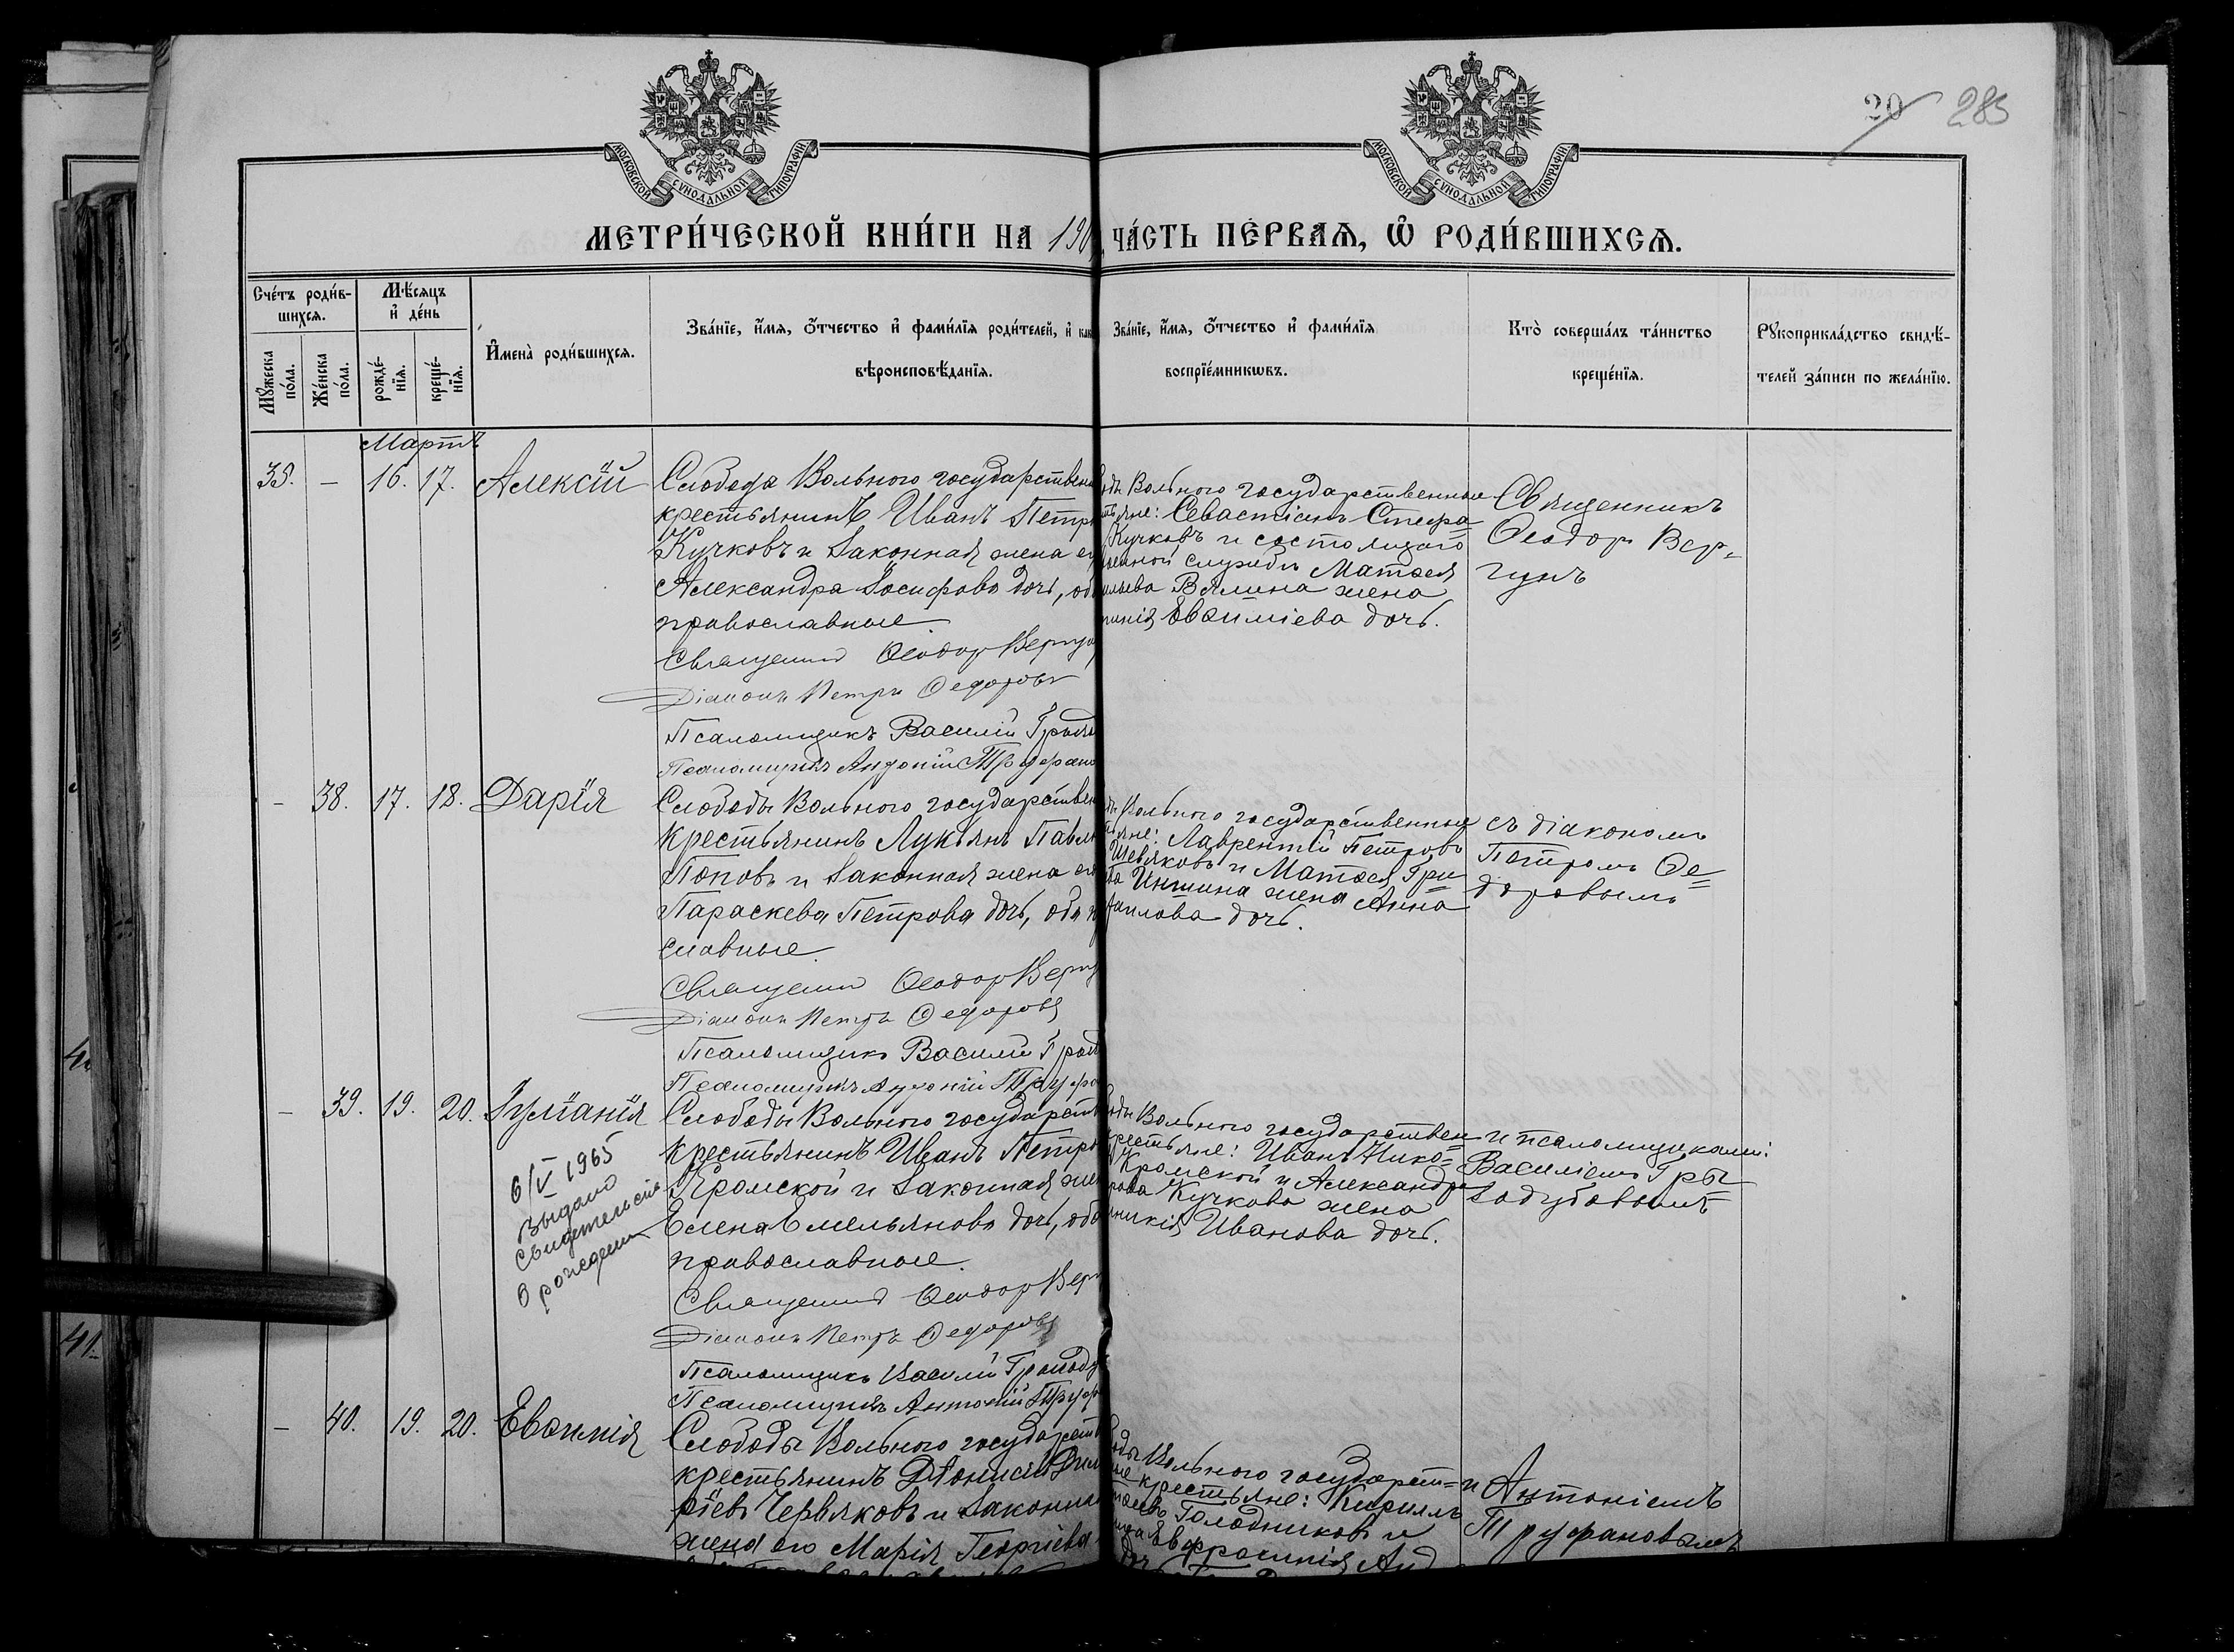 20 285
МОСКОВСКОЙ СУНОДАЛЬНОЙ ТИПОГРАФІИ
МОСКОВСКОЙ СУНОДАЛЬНОЙ ТИПОГРАФІИ
МЕТРИ́ЧЕСКОЙ КНИ́ГИ НА 190
ЧА́СТЬ ПЕ́РВАЯ, Ѡ РОДИ́ВШИХСЯ.
Сче́тъ роди́в-
шихся.
Мѣ́сяцъ
и҆ де́нь
Мꙋ́жеска
по́ла.
Же́нска
по́ла.
рожде́-
нїя.
креще́-
нїя.
И҆мена̀ роди́вшихся.
Зва́нїе, и҆́мя, ѻ҆́тчество и҆ фами́лїя роди́телей, и҆ как
вѣроисповѣ́данїя.
Зва́нїе, и҆́мя, ѻ҆́тчество и҆ фами́лїя
воспрїе́мникѡвъ.
Кто̀ соверша́лъ та́инство
креще́нїя.
Рꙋкоприкла́дство свидѣ́-
телей за́писи по жела́нїю.
Мартъ
35. — 16. 17. Алексій
Слобода Вольного государствен
крестьянинъ Иванъ Петр
Кучковъ и законная жена ег
Александра Іосифова дочь, об
православные.
Священник Ѳеодор Вергу
Діаконъ Петръ Ѳедоровъ
Псаломщикъ Василій Гры
Псаломщикъ Антоній Труфано
ды Вольного государственные
яне: Севастіанъ Стефа=
Кучковъ и состоящаго
военной службѣ Матѳея
Вялина жена
Евѳиміева дочь.
Священникъ
Ѳеодоръ Вер=
гунъ
— 38. 17. 18. Дарія
Слободы Вольного государствен
крестьянинъ Лукіянъ Павл
Поповъ и законная жена ег
Параскева Петрова дочь, оба п
славные.
Священник Ѳеодор Верг
Діаконъ Петръ Ѳедоровъ
Псаломщикъ Василій Грыз
Псаломщикъ Антоній Труфа
Вольного государственные
яне: Лаврентій Петровъ
Шевляковъ и Матѳея Гри=
Иншина жена Анна
дочь.
съ діакономъ
Петромъ Ѳе=
доровымъ
— 39. 19. 20. Іуліанія
6/V 1965
выдано
свидетельство
о рождении
Слободы Вольного государств
крестьянинъ Иванъ Петро
Кромской и законная жен
Елена Емельянова дочь, оба
православные.
Священник Ѳеодор Верг
Діаконъ Петръ Ѳедоровъ
Псаломщикъ Василій Грызоду
Псаломщикъ Антоній Труф
ды Вольного государствен
крестьяне: Иванъ Нико=
Кромской и Александра
Кучкова жена
Иванова дочь.
и псаломщиками:
Василіемъ Гры=
зодубовымъ
— 40. 19. 20. Евѳимія
Слободы Вольного государств
крестьянинъ Діонисій Дим
ріевъ Червяковъ и законная
жена его Марія Георгіева
Вольного государст=
крестьяне: Кириллъ
Голодниковъ и
Евфросинія Анд
и Антоніемъ
Труфановымъ
4
41